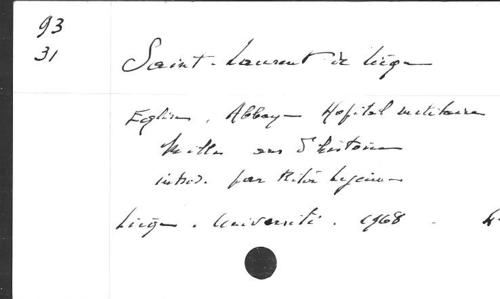 93
31
Saint-Laurent de Liège
Eglise, Abbaye Hôpital militaire
Mille ans d'histoire
introd. par Rita Lejeune
Liège. Université. 1968 -